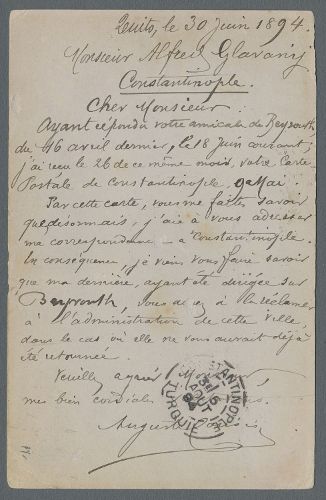 Quito, le 30 Juin 1894.
Monsieur Alfred Glavany
Constantinople.
Cher Monsieur.
Ayant répondu votre amicale de Beyrouth
du 16 avril dernier, le 18 Juin courant;
j'ai recu le 26 de ce même mois, votre Carte
Postale de Constantinople, 9 Mai.
Par cette carte, vous me faites savoir
que désormais, j'aie à vous adresser
ma correspondance à Constantinople.
En conséquence, je viens vous faire savoir
que ma dernière, ayant été dirigée sur
Beyrouth, vous ayez à la réclamer
à l'administration de cette ville,
dans le cas où elle ne vous aurait déjà
été retournée.
Veuillez agréer
mes bien cordiales
Auguste
CONSTANTINOPLE
AOUT
TURQUIE